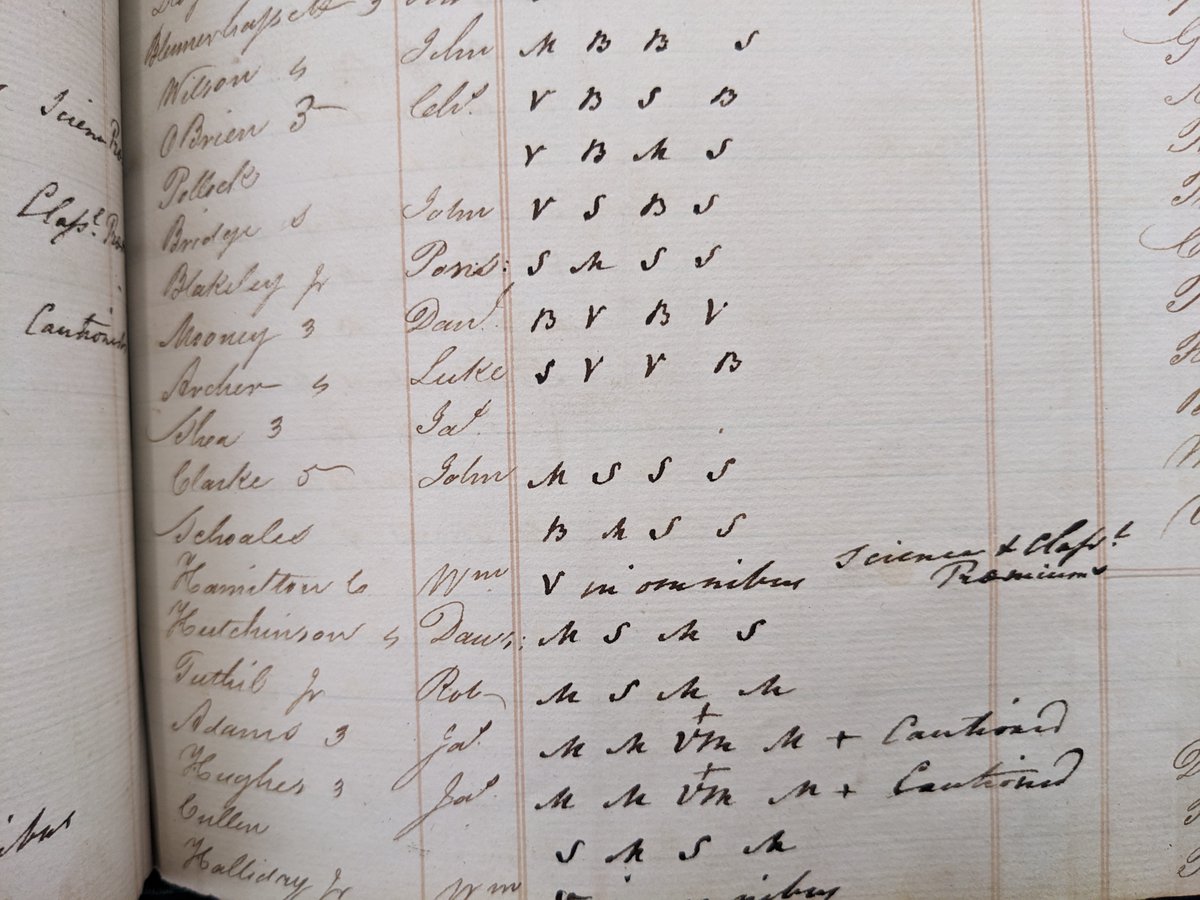 Blennerhasset 3
Wilson s John M B B S
OBrien 3 Chs. V B S B
Pollock V B M S
Bridge s John V S B S
Blakeley Jr Pons: S M S S
Mooney 3 Danl. B V B V
Archer s Luke S V V B
Shea 3 Jas.
Clarke 5 John M S S S
Schoales B M S S
Hamilton 6 Wm V in omnibus Science & Class.l
Præmiums
Hutchinson s Daws: M S M S
Tuthil Jr Rob M S M M
Adams 3 Jas. M M + Vm M + Cautioned
Hughes 3 Jas. M M + Vm M + Cautioned
Cullen S M S M
Halliday Jr Wm V in omnibus
Science
Class.l
Cautioned